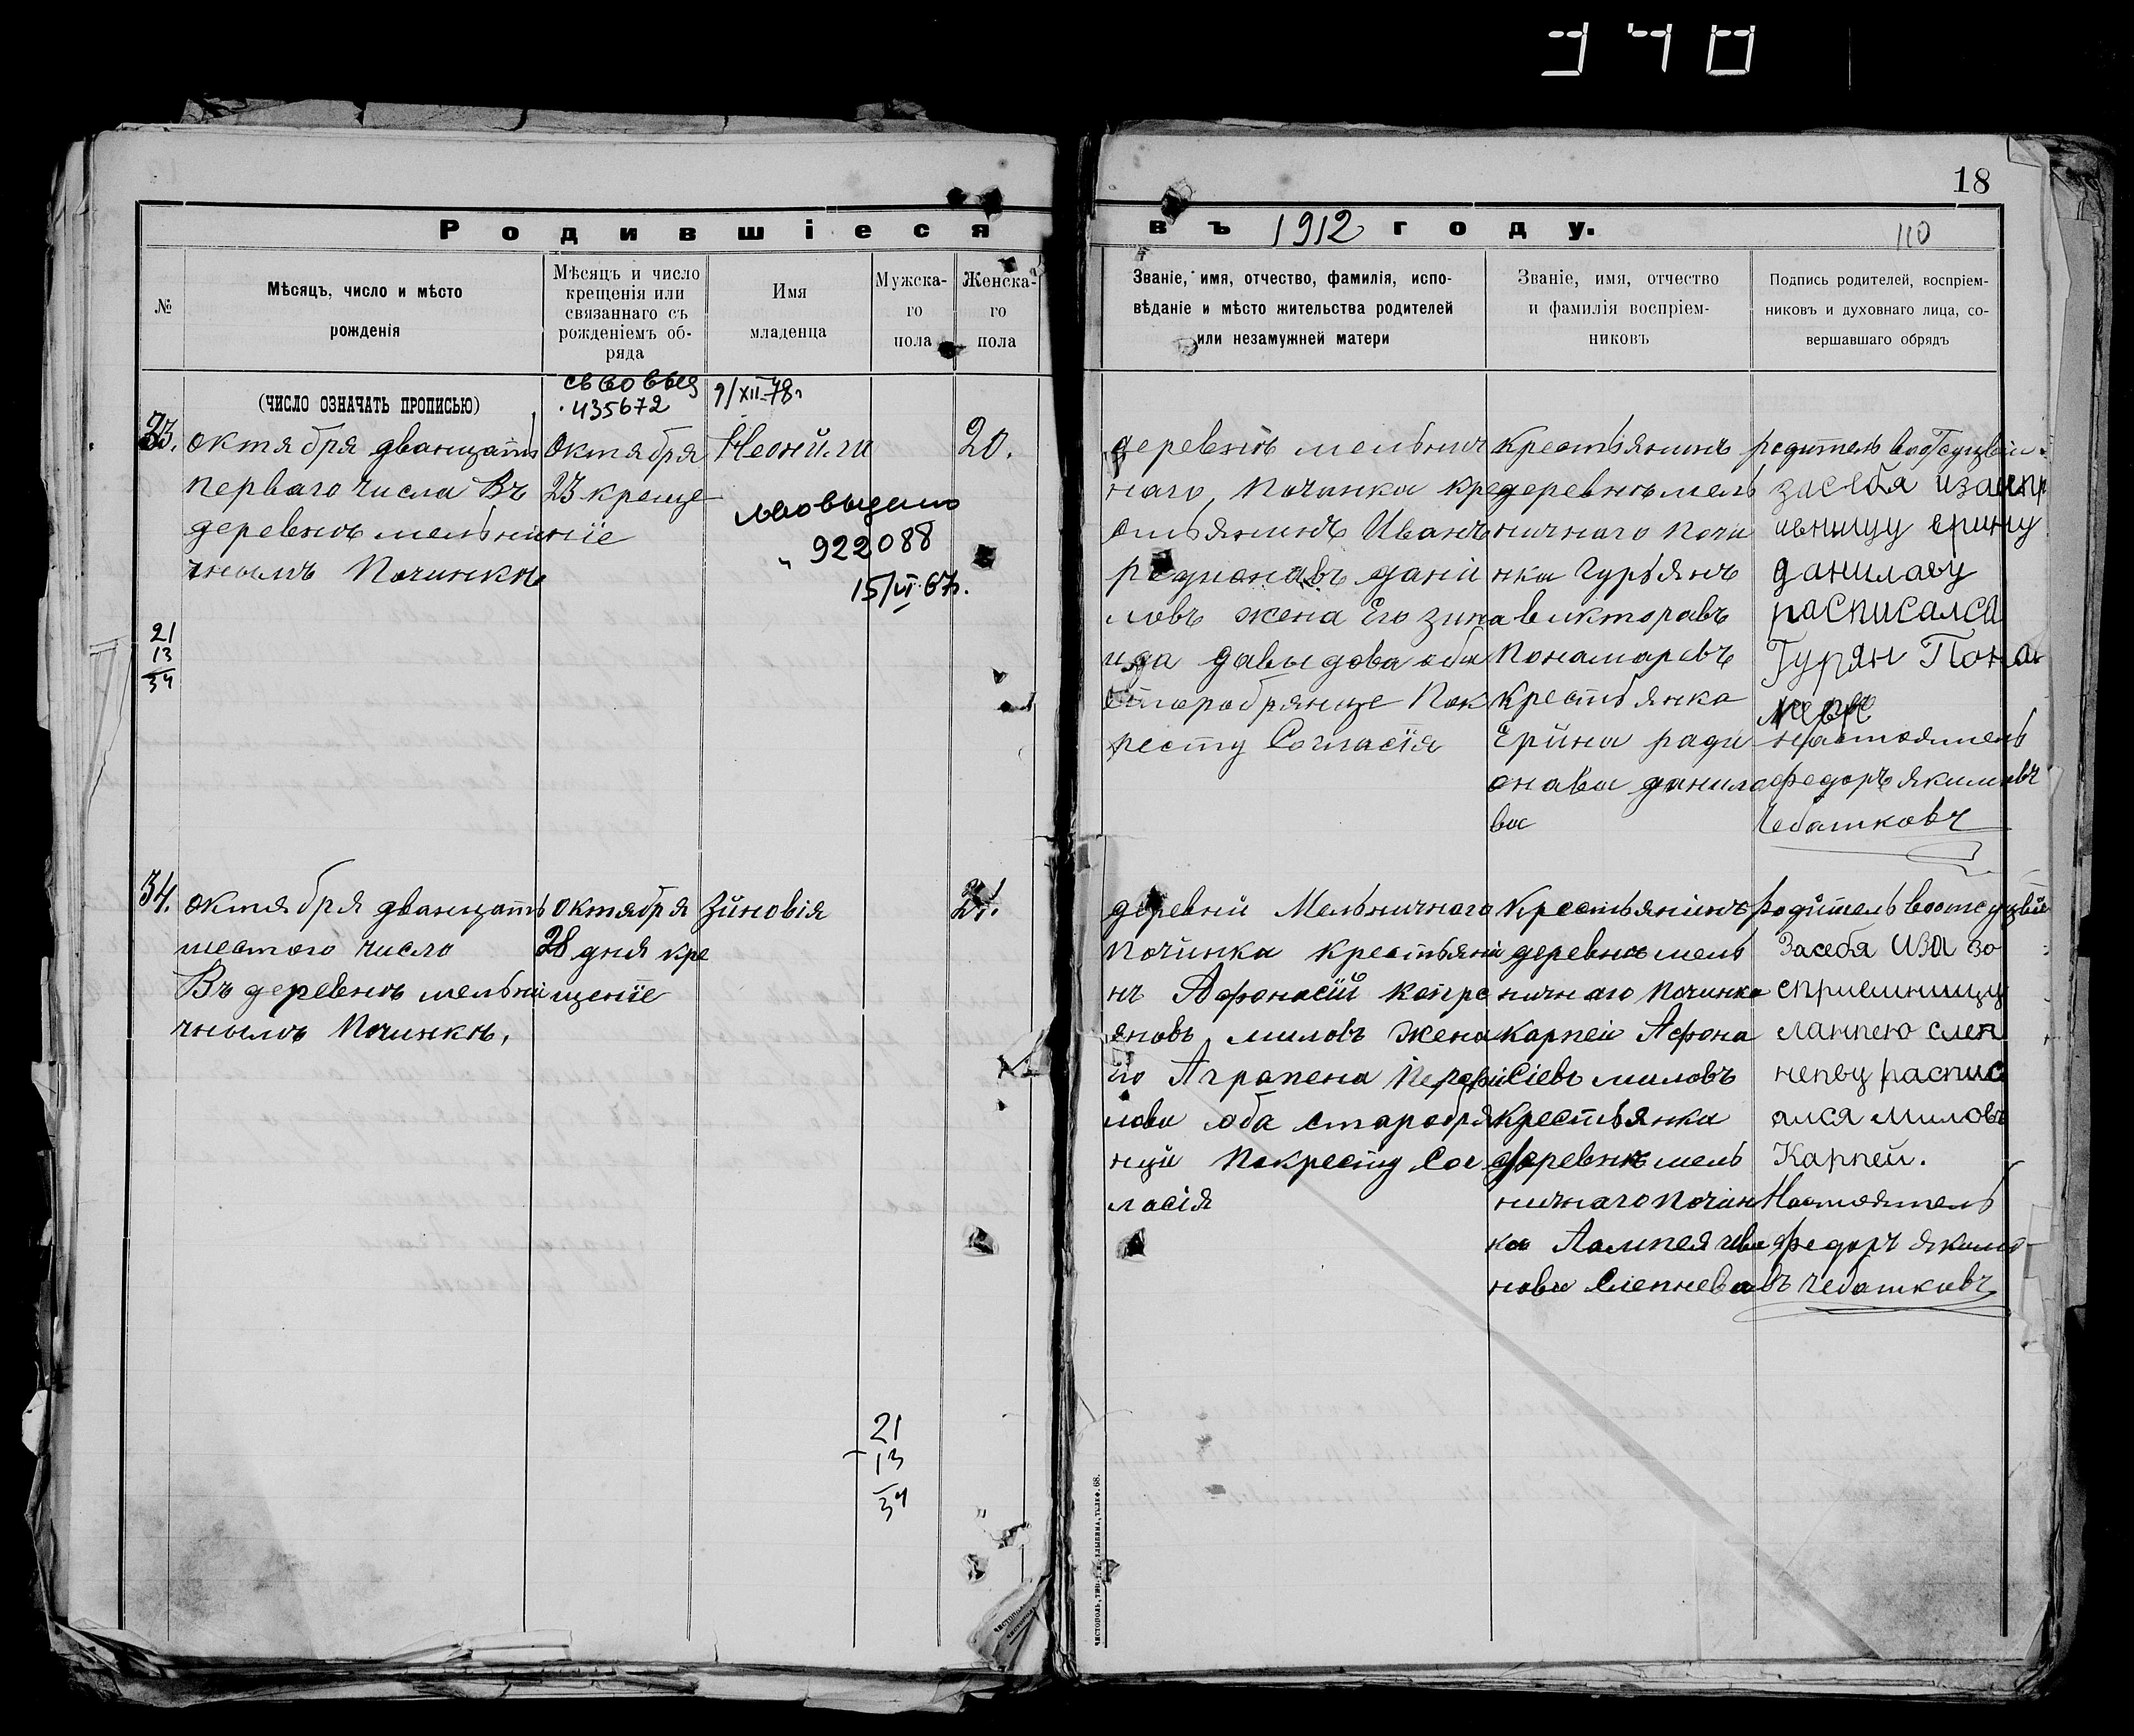 340
18
Родившіеся
въ 1912 году.
110
№
Мѣсяцъ, число и мѣсто
рожденія
Мѣсяцъ и число
крещенія или
связаннаго съ
рожденіемъ об-
ряда
Имя
младенца
Мужска-
го
пола
Женска-
го
пола
Званіе, имя, отчество, фамилія, испо-
вѣданіе и мѣсто жительства родителей
или незамужней матери
Званіе, имя, отчество
и фамилія воспріем-
никовъ
Подпись родителей, воспріем-
никовъ и духовнаго лица, со-
вершавшаго обрядъ
(ЧИСЛО ОЗНАЧАТЬ ПРОПИСЬЮ)
435672
9/XII-78г
33.
октября дванцать
перваго числа Въ
деревнѣ мельни
чнымъ Починкѣ
21
13
34
Октября
23 креще
ніе
Неонйла
922088
15/VI-67г.
20.
деревнѣ мельнич
наго, Починка кре
стьянинъ Иванъ
родионавъ даній
ловъ жена Его зина
ида давыдова оба
старобрянце Пок
ресту Согласія
крестьянинъ
деревнѣ мель
ничнаго почи
нка Гурьянъ
викторавъ
Понамаревъ
крестьянка
Ерйна ради
онава данила
ва
родитель
засебя иза
авницу ерину
данилаву
расписалса
Гурян Пона
настоятель
федоръ якимовъ
Чебашковъ
34.
октября дванцать
шестого число
Въ деревнѣ мельни
чнымъ Починкѣ,
октября
28 дня кре
щеніе
Зйновія
21.
деревнй Мельничнаго
Почйнка крестьяни
нъ Афонасій
яновъ миловъ жена
Его Аграпена
лова оба старобря
нцй Покресту Сог
ласія
Крестьянинъ
деревнѣ мель
ничнаго Починка
Карпей Афона
Сіевъ миловъ
крестьянка
деревнѣ мель
ничнаго почин
ка Лампея ива
нова Слепнева
родйтель
Засебя иза во
сприемницу
ланпею слеп
неву распис
ался миловъ
Карпей.
Настоятель
федоръ якимо
въ чебашковъ
21
13
34